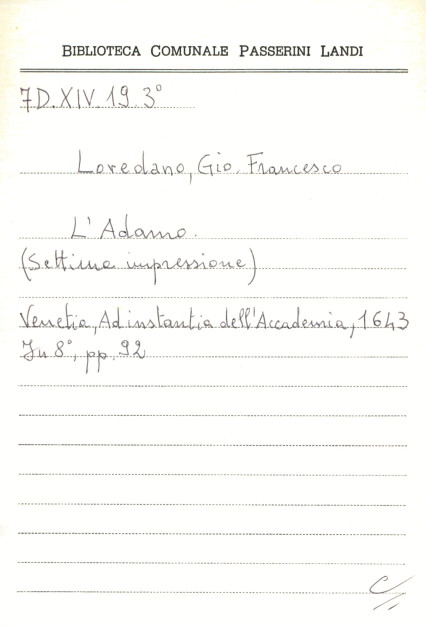 BIBLIOTECA COMUNALE PASSERINI LANDI
7D.XIV.19.3°
Loredano, Gio. Francesco
L'Adamo.
(Settima impressione)
Venetia, Ad instantia dell'Accademia, 1643
In 8°, pp. 92